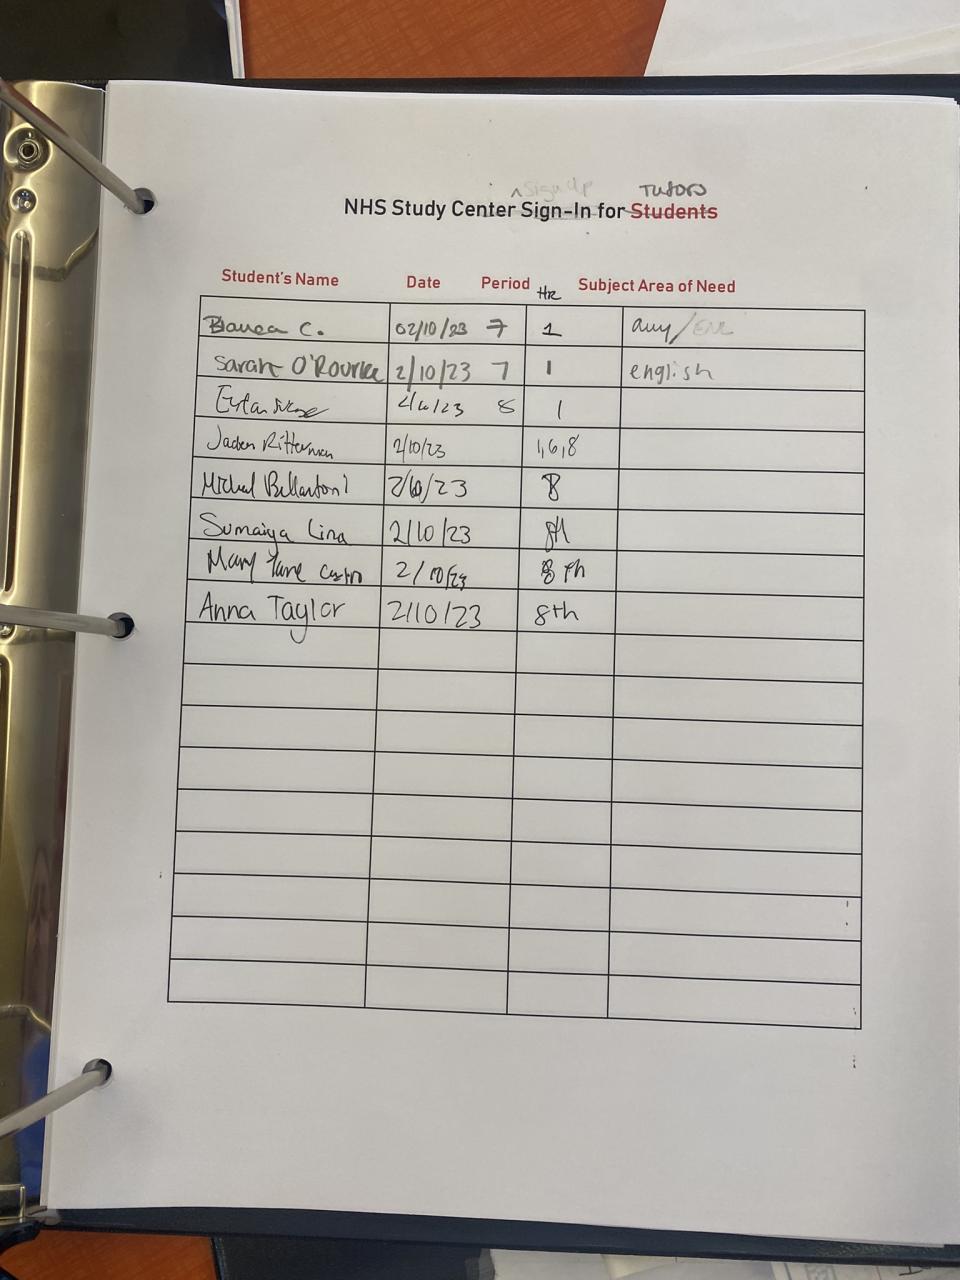 ^ Sign Up Tutors
NHS Study Center Sign-In for Students
Student's Name Date Period HR Subject Area of Need
C. 02/10/23 7 1 any/
Sarah O'Rourke 2/10/23 7 1 english
8 1
Jaden Ritterman 2/10/23 1,6,8
Michael Bellantoni 2/10/23 8
Sumaiya Lina 2/10/23 8th
Mary Jane Castro 2/10/23 8th
Anna Taylor 2/10/23 8th